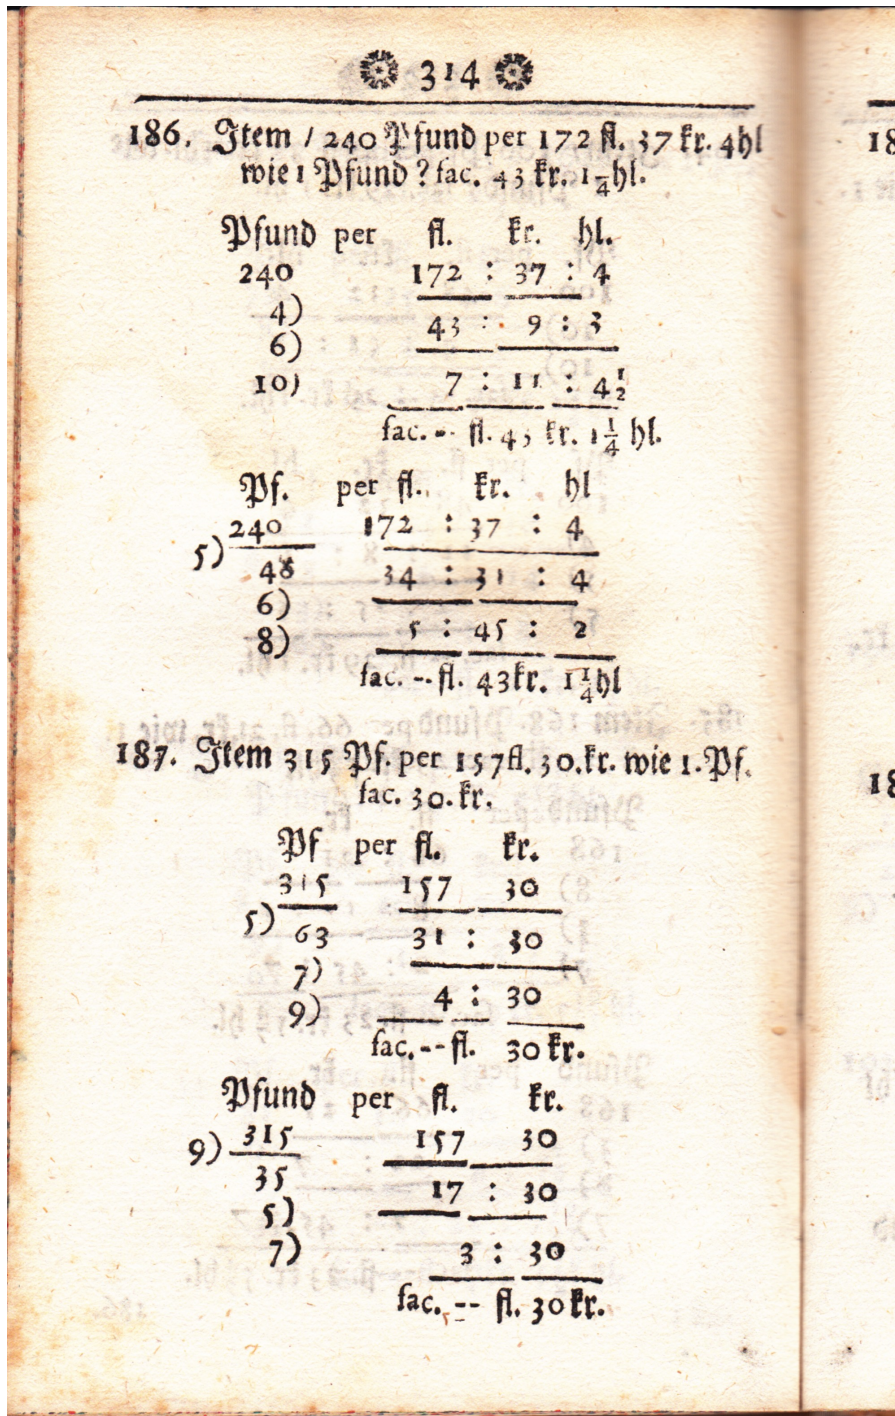 314
186. Item / 240 Pfund per 172 fl. 37 kr. 4 hl
wie 1 Pfund? fac. 43 kr. 1 1/4 hl.
Pfund per fl. kr. hl.
240 172 : 37 : 4
4) 43 : 9 : 3
6)
10) 7 : 11 : 4 1/2
fac. -- fl. 43 kr. 1 1/4 hl.
Pf. per fl. kr. hl
240 172 : 37 : 4
5) 48 34 : 31 : 4
6)
8) 5 : 45 : 2
fac. -- fl. 43 kr. 1 1/4 hl
187. Item 315 Pf. per 157 fl. 30. kr. wie 1. Pf.
fac. 30. kr.
Pf per fl. kr.
315 157 30
5) 63 31 : 30
7)
9) 4 : 30
fac. -- fl. 30 kr.
Pfund per fl. kr.
9) 315 157 30
35 17 : 30
5)
7) 3 : 30
fac. -- fl. 30 kr.